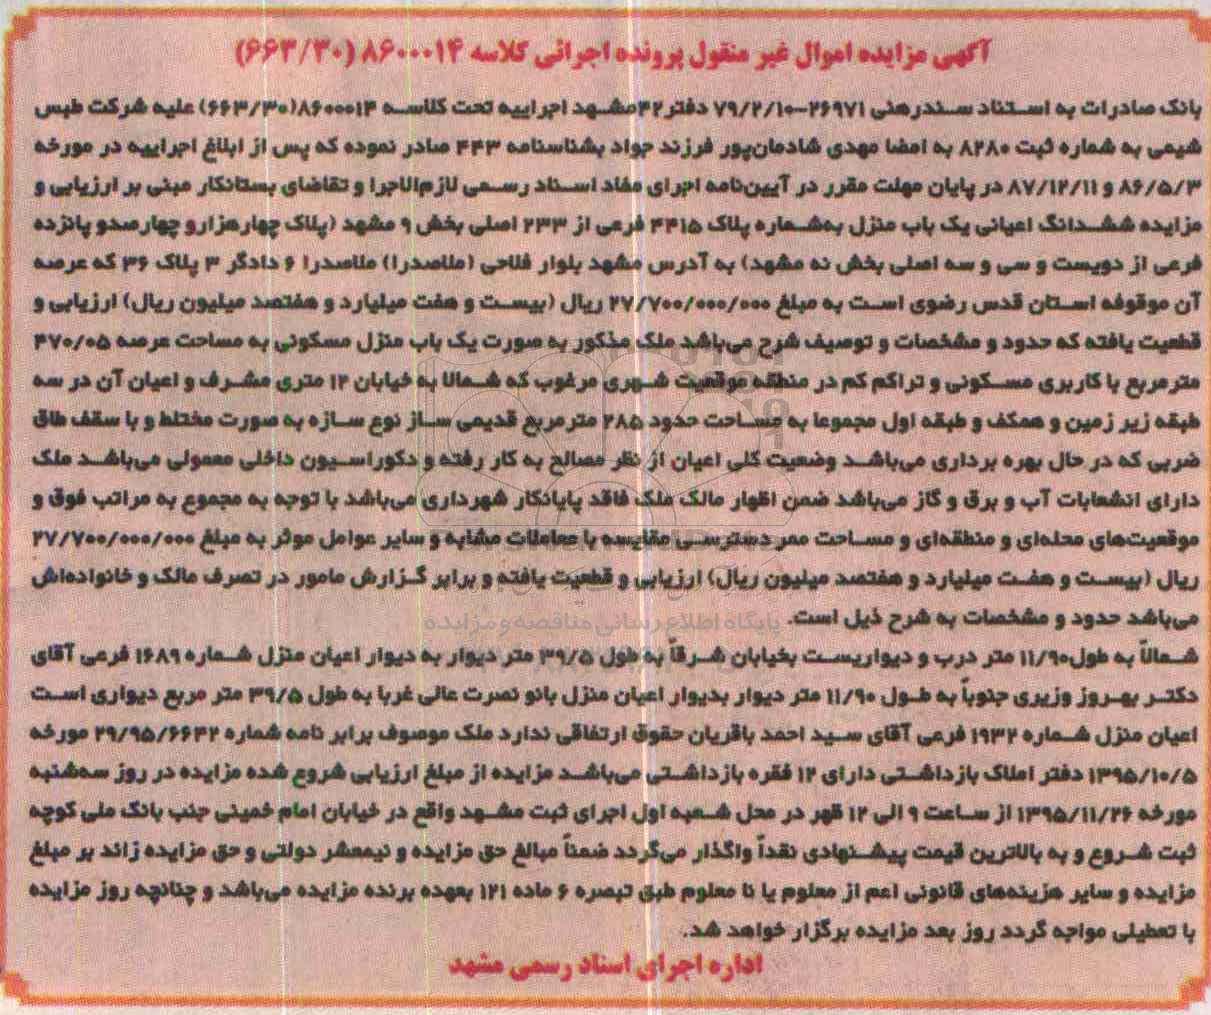 آگهی مزایده اموال غیر منقول پرونده اجرائی کلاسه ۸۶۰۰۰۱۴ (۶۶۳/۳۰)
بانک صادرات به استناد سندرهنی ۲۶۹۷۱-۷۹/۲/۱۰ دفتر۴۲مشهد اجراییه تحت کلاسه ۸۶۰۰۰۱۴(۶۶۳/۳۰) علیه شرکت طبس
شیمی به شماره ثبت ۸۲۸۰ به امضا مهدی شادمان‌پور فرزند جواد بشناسنامه ۴۴۳ صادر نموده که پس از ابلاغ اجراییه در مورخه
۸۶/۵/۳ و ۸۷/۱۲/۱۱ در پایان مهلت مقرر در آیین‌نامه اجرای مفاد اسناد رسمی لازم‌الاجرا و تقاضای بستانکار مبنی بر ارزیابی و
مزایده ششدانگ اعیانی یک باب منزل به‌شماره پلاک ۴۴۱۵ فرعی از ۲۳۳ اصلی بخش ۹ مشهد (پلاک چهارهزارو چهارصدو پانزده
فرعی از دویست و سی و سه اصلی بخش نه مشهد) به آدرس مشهد بلوار فلاحی (ملاصدرا) ملاصدرا ۶ دادگر ۳ پلاک ۳۶ که عرصه
آن موقوفه استان قدس رضوی است به مبلغ ۲۷/۷۰۰/۰۰۰/۰۰۰ ریال (بیست و هفت میلیارد و هفتصد میلیون ریال) ارزیابی و
قطعیت یافته که حدود و مشخصات و توصیف شرح می‌باشد ملک مذکور به صورت یک باب منزل مسکونی به مساحت عرصه ۴۷۰/۰۵
مترمربع با کاربری مسکونی و تراکم کم در منطقه موقعیت شهری مرغوب که شمالا به خیابان ۱۲ متری مشرف و اعیان آن در سه
طبقه زیر زمین و همکف و طبقه اول مجموعا به مساحت حدود ۲۸۵ مترمربع قدیمی ساز نوع سازه به صورت مختلط و با سقف طاق
ضربی که در حال بهره برداری می‌باشد وضعیت کلی اعیان از نظر مصالح به کار رفته و دکوراسیون داخلی معمولی می‌باشد ملک
دارای انشعابات آب و برق و گاز می‌باشد ضمن اظهار مالک ملک فاقد پایانکار شهرداری می‌باشد با توجه به مجموع به مراتب فوق و
موقعیت‌های محله‌ای و منطقه‌ای و مساحت ممر دسترسی مقایسه با معاملات مشابه و سایر عوامل موثر به مبلغ ۲۷/۷۰۰/۰۰۰/۰۰۰
ریال (بیست و هفت میلیارد و هفتصد میلیون ریال) ارزیابی و قطعیت یافته و برابر گزارش مامور در تصرف مالک و خانواده‌اش
می‌باشد حدود و مشخصات به شرح ذیل است.
پایگاه اطلاع رسانی مناقصه و مزایده
شمالاً به طول۱۱/۹۰ متر درب و دیواریست بخیابان شرقاً به طول ۳۹/۵ متر دیوار به دیوار اعیان منزل شماره ۱۶۸۹ فرعی آقای
دکتر بهروز وزیری جنوباً به طول ۱۱/۹۰ متر دیوار بدیوار اعیان منزل بانو نصرت عالی غربا به طول ۳۹/۵ متر مربع دیواری است
اعیان منزل شماره ۱۹۳۲ فرعی آقای سید احمد باقریان حقوق ارتفاقی ندارد ملک موصوف برابر نامه شماره ۲۹/۹۵/۶۶۳۲ مورخه
۱۳۹۵/۱۰/۵ دفتر املاک بازداشتی دارای ۱۲ فقره بازداشتی می‌باشد مزایده از مبلغ ارزیابی شروع شده مزایده در روز سه‌شنبه
مورخه ۱۳۹۵/۱۱/۲۶ از ساعت ۹ الی ۱۲ ظهر در محل شعبه اول اجرای ثبت مشهد واقع در خیابان امام خمینی جنب بانک ملی کوچه
ثبت شروع و به بالاترین قیمت پیشنهادی نقداً واگذار می‌گردد ضمناً مبالغ حق مزایده و نیمعشر دولتی و حق مزایده زائد بر مبلغ
مزایده و سایر هزینه‌های قانونی اعم از معلوم یا نا معلوم طبق تبصره ۶ ماده ۱۲۱ بعهده برنده مزایده می‌باشد و چنانچه روز مزایده
با تعطیلی مواجه گردد روز بعد مزایده برگزار خواهد شد.
اداره اجرای اسناد رسمی مشهد